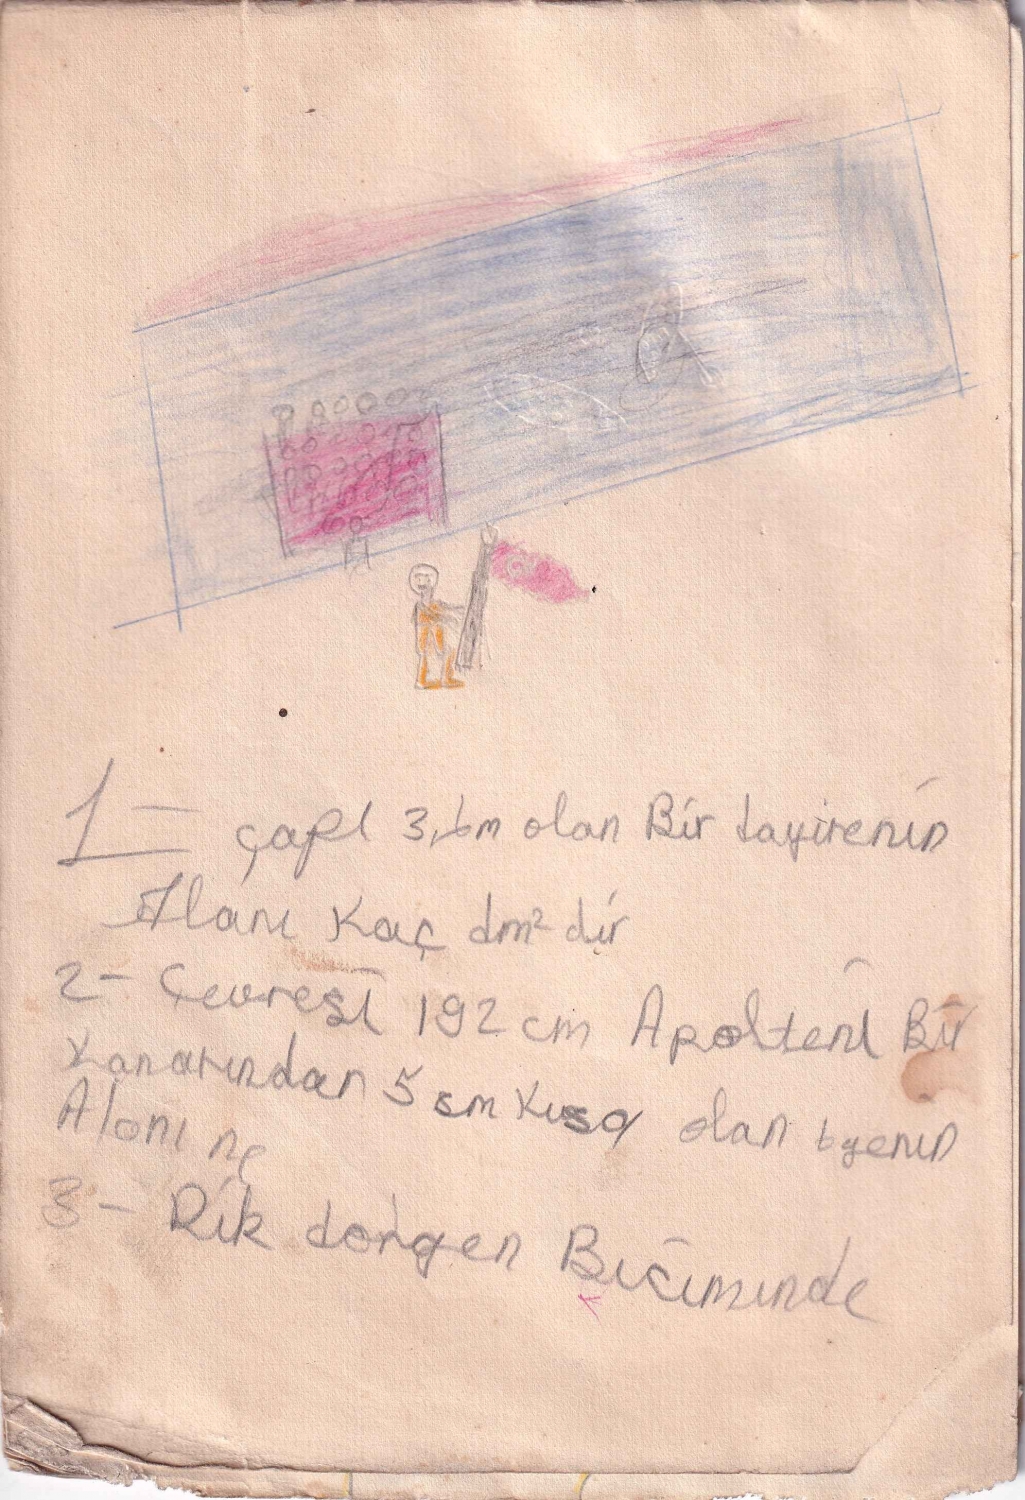 1- çapı 3,6m olan Bir dayirenin
Alanı Kaç dm² dir
2- Çevresi 192 cm Apolteni Bir
Kanarından 5 sm Kısa olan
Alanı ne
3- Dik dörgen Biçiminde